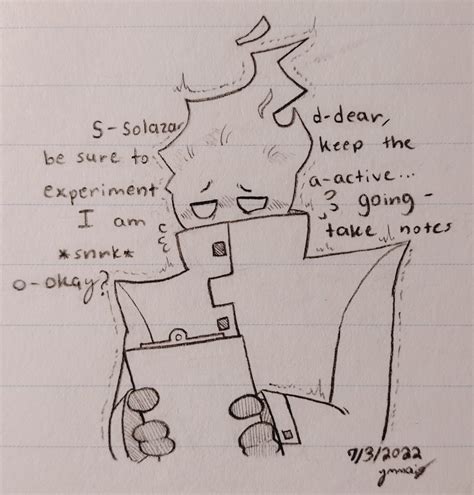 S-Solazar d-dear,
be sure to keep the
experiment a-active...
I am going
*snrk* take notes
o-okay?
7/3/2022